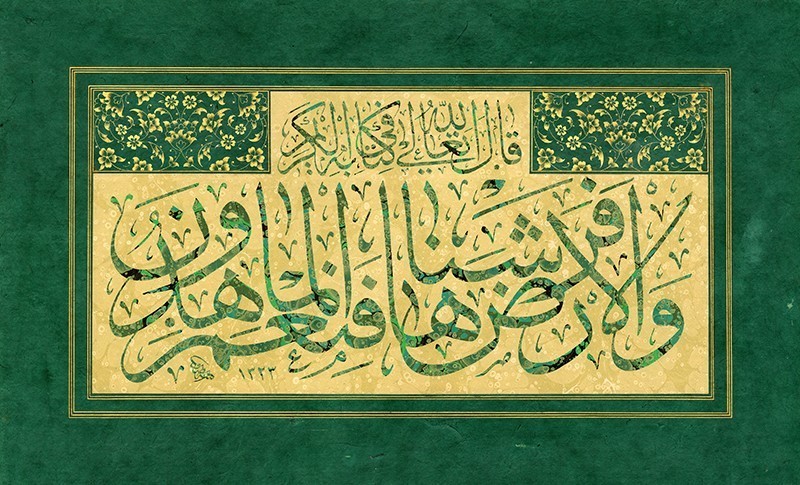 قال الله تعالى في كتابه الكريم
والأرض فرشناها فنعم الماهدون
١٢٢٣